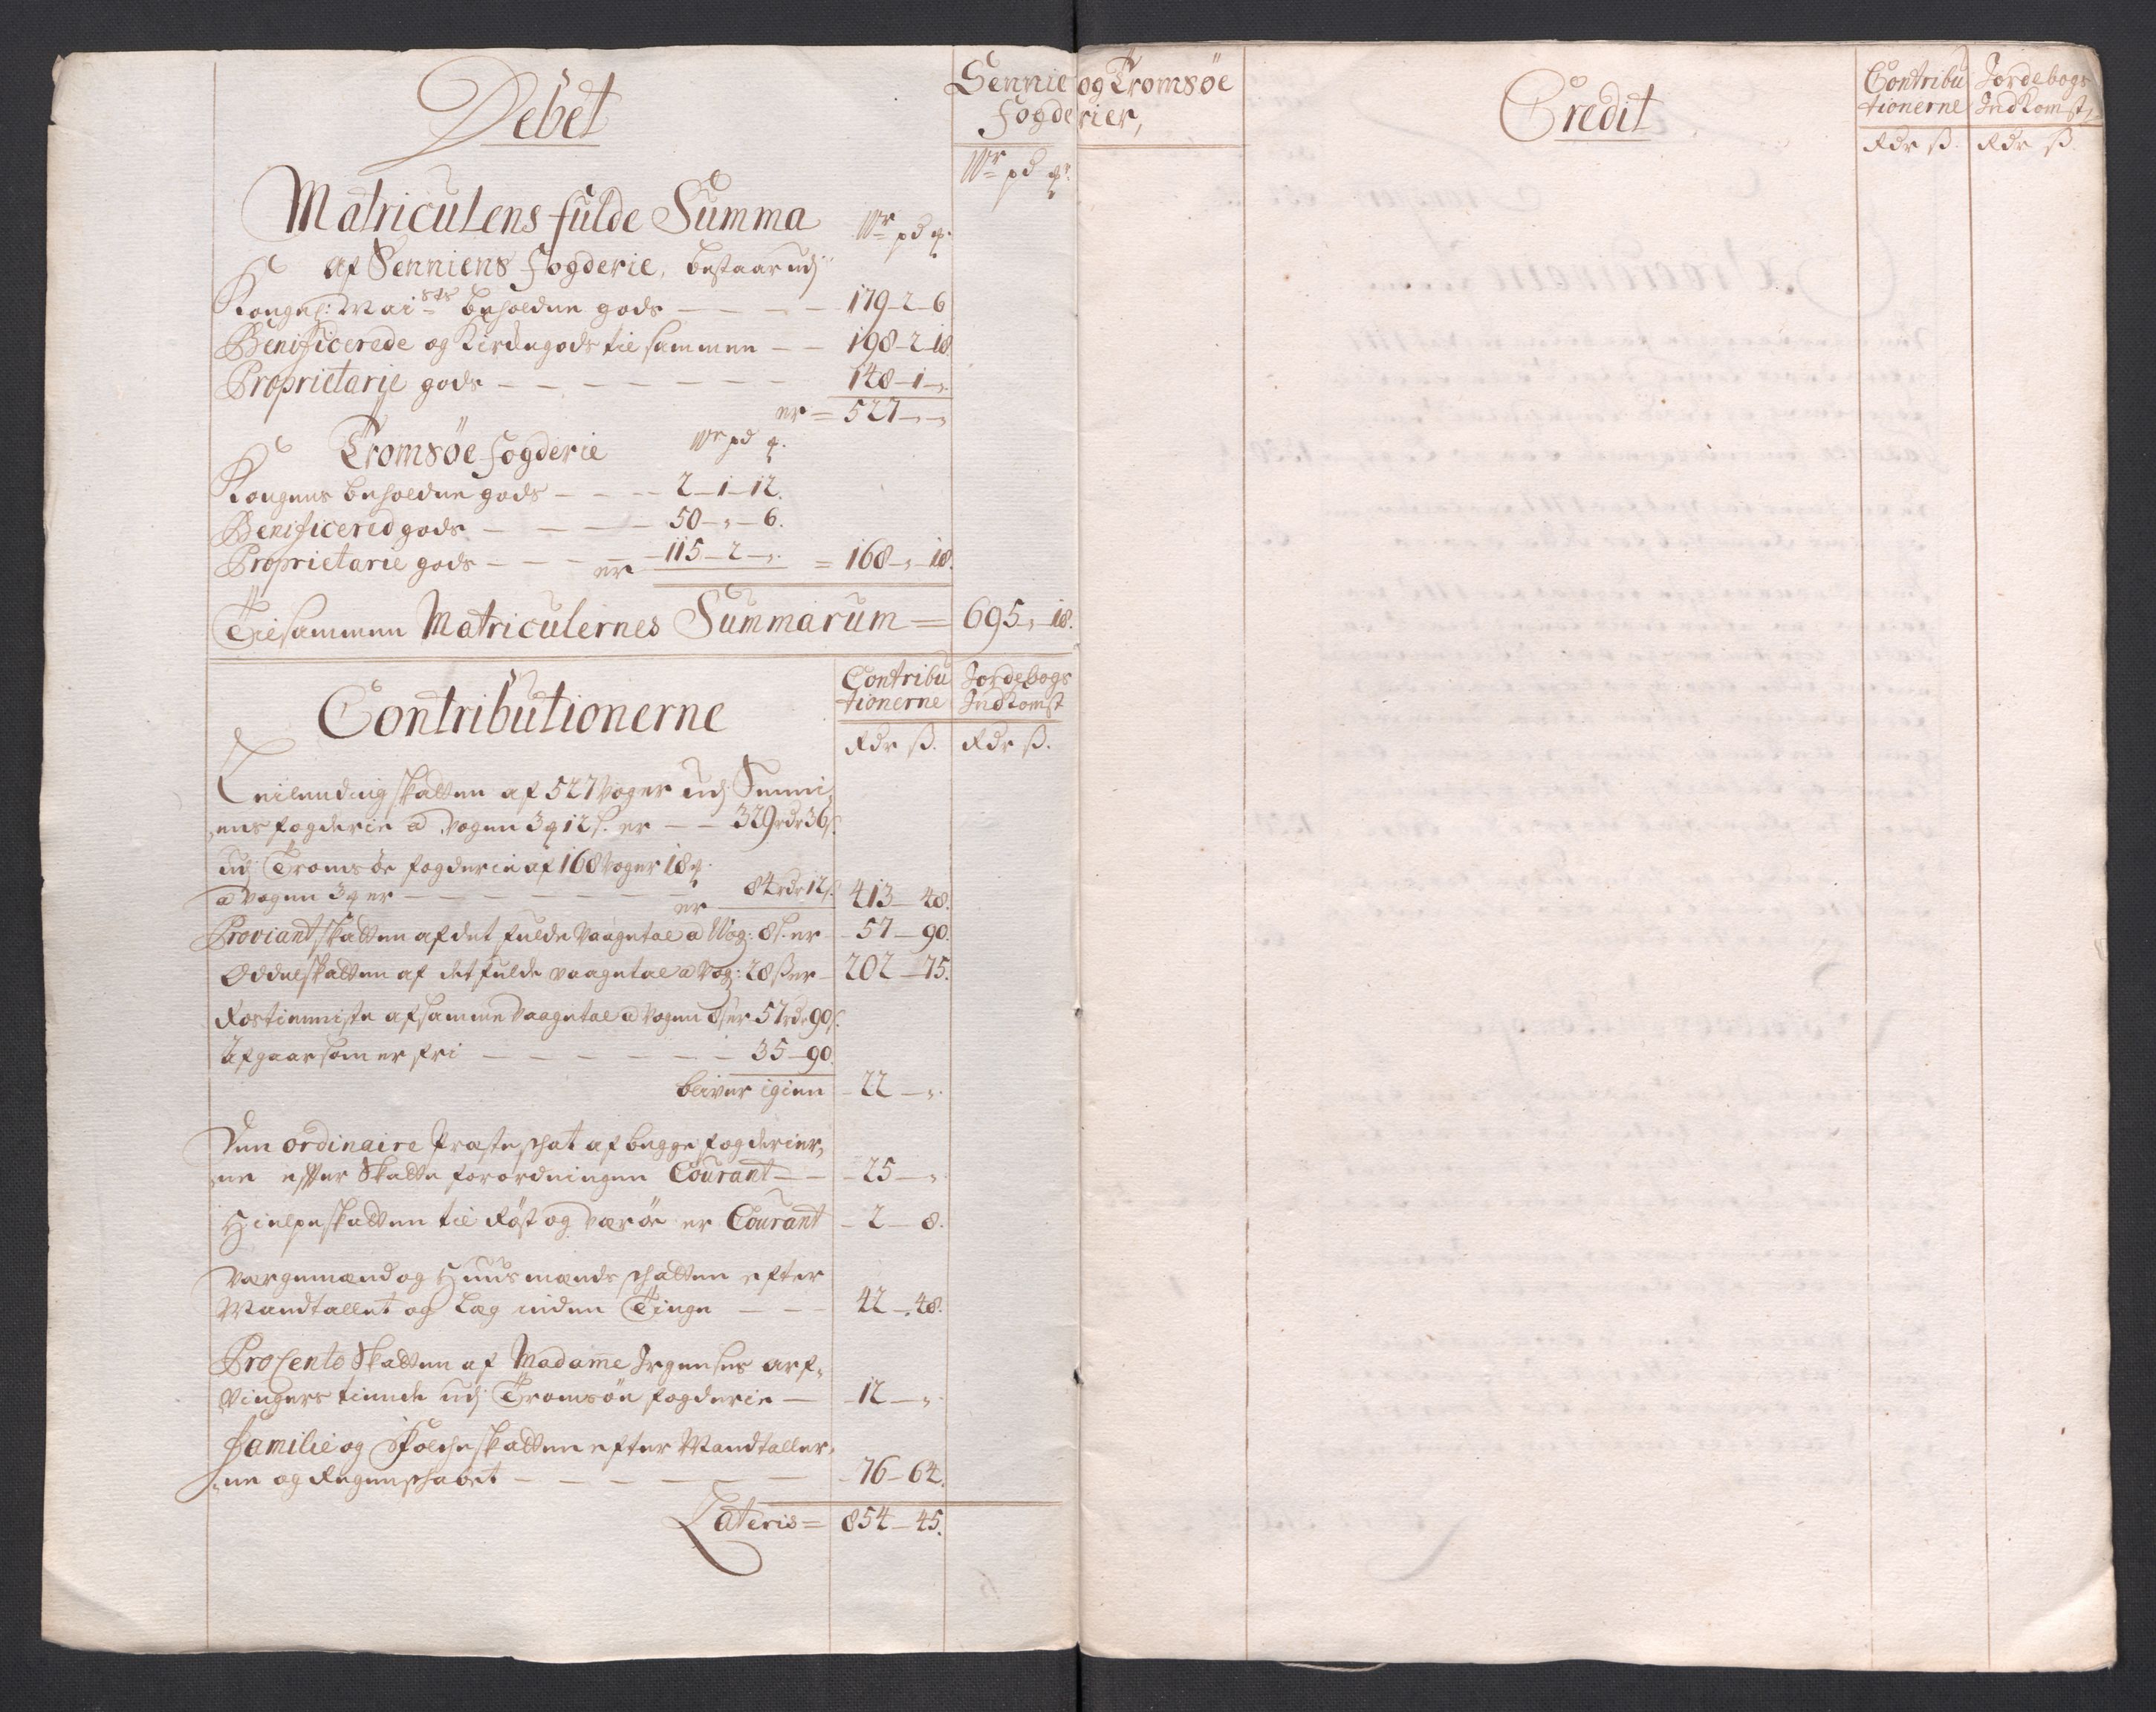 Debet
Sennie og Tromsøe
Fogderier,
Wr pd q.
Matriculens fulde Summa
Wr pd q.
af Senniens Fogderie, bestaar udj
Kongel: Mai sts beholdne gods — — — — 179 – 2 – 6
Benificerede og Kirchegods tilsammen — — 198 – 2 – 18.
Proprietarie gods — — — — — — — 148 – 1 – „
er = 527 – „ – „
Tromsøe Fogderie Wr pd q.
Kongens beholdne gods — — — 2 – 1 – 12.
Benificered gods — — — — 50 – „ – 6.
Proprietarie gods — — — er — 115 – 2 – „. = 168 – „ – 18.
Tilsammen Matriculernes Summarum = 695 „ 18.
Contributionerne
Contribu
tionerne
Jordebogs
Indkomst
Rdr ß. Rdr ß.
Leilending skatten af 527 Voger udj Senni„
„ens fogderie a Vogen 3 q 12 ß. er — — 329 rdr 36 ß.
udj Tromsøe fogderie af 168 Voger 18 q.
a Vogen 3 q er — — — — — — er 84 rdr 12 ß. 413 – 48.
Proviantskatten af det fulde Vaagetal a Wog: 8 ß. er – 57 – 90.
Oddelskatten af det fulde vaagetal a Vog: 28 ß er – 202 – 75.
Rostienniste af samme Vaagetal a Vogen 8 ß er 57 rdr 90 ß.
Afgaar som er fri — — — — — — 35 – 90.
bliver igien – 22 – „.
Den ordinaire Præsteschat af begge fogderier„
„ne efter Skatte forordningen Courant — — – 25 – „
Hielpeskatten til Røst og Værøe er Courant – 2 – 8.
Vargemænd og Huusmænds schatten efter
Mandtallet og Læg inden Tinge — — — 42 – 48.
ProCento Skatten af Madame Irgenses arf„
Vingers tiende udj Tromsøe fogderie — – 12 – „.
Familie og Folcheskatten efter Mandtaller„
„ne og Regenschabet — — — — — – 76 – 64.
Lateris = 854 – 45.
Credit
Contribu
tionerne
Jordebogs
Indkomst,
Rdr ß. Rdr ß.